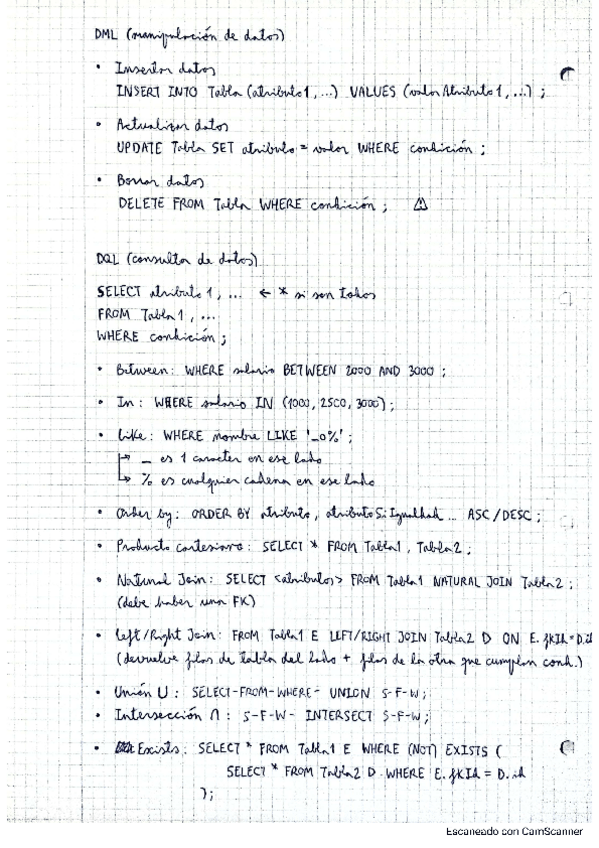 DML (manipulación de datos)
• Insertar datos
INSERT INTO Tabla (atributo1, ...) VALUES (valorAtributo1, ...);
• Actualizar datos
UPDATE Tabla SET atributo = valor WHERE condición;
• Borrar datos
DELETE FROM Tabla WHERE condición; ⚠
DQL (consulta de datos)
SELECT atributo1, ... ← * si son todos
FROM Tabla1, ...
WHERE condición;
• Between: WHERE salario BETWEEN 2000 AND 3000;
• In: WHERE salario IN (1000, 2500, 3000);
• Like: WHERE nombre LIKE '_o%';
↳ _ es 1 caracter en ese lado
↳ % es cualquier cadena en ese lado
• Order by: ORDER BY atributo, atributoSiIgualdad ... ASC/DESC;
• Producto cartesiano: SELECT * FROM Tabla1, Tabla2;
• Natural Join: SELECT <atributos> FROM Tabla1 NATURAL JOIN Tabla2;
(debe haber una FK)
• Left/Right Join: FROM Tabla1 E LEFT/RIGHT JOIN Tabla2 D ON E.fkId=D.id
(devuelve filas de tabla del lado + filas de la otra que cumplan cond.)
• Unión U: SELECT-FROM-WHERE- UNION S-F-W;
• Intersección ∩: S-F-W- INTERSECT S-F-W;
• Exists: SELECT * FROM Tabla1 E WHERE (NOT) EXISTS (
SELECT * FROM Tabla2 D WHERE E.fkId = D.id
);
Escaneado con CamScanner